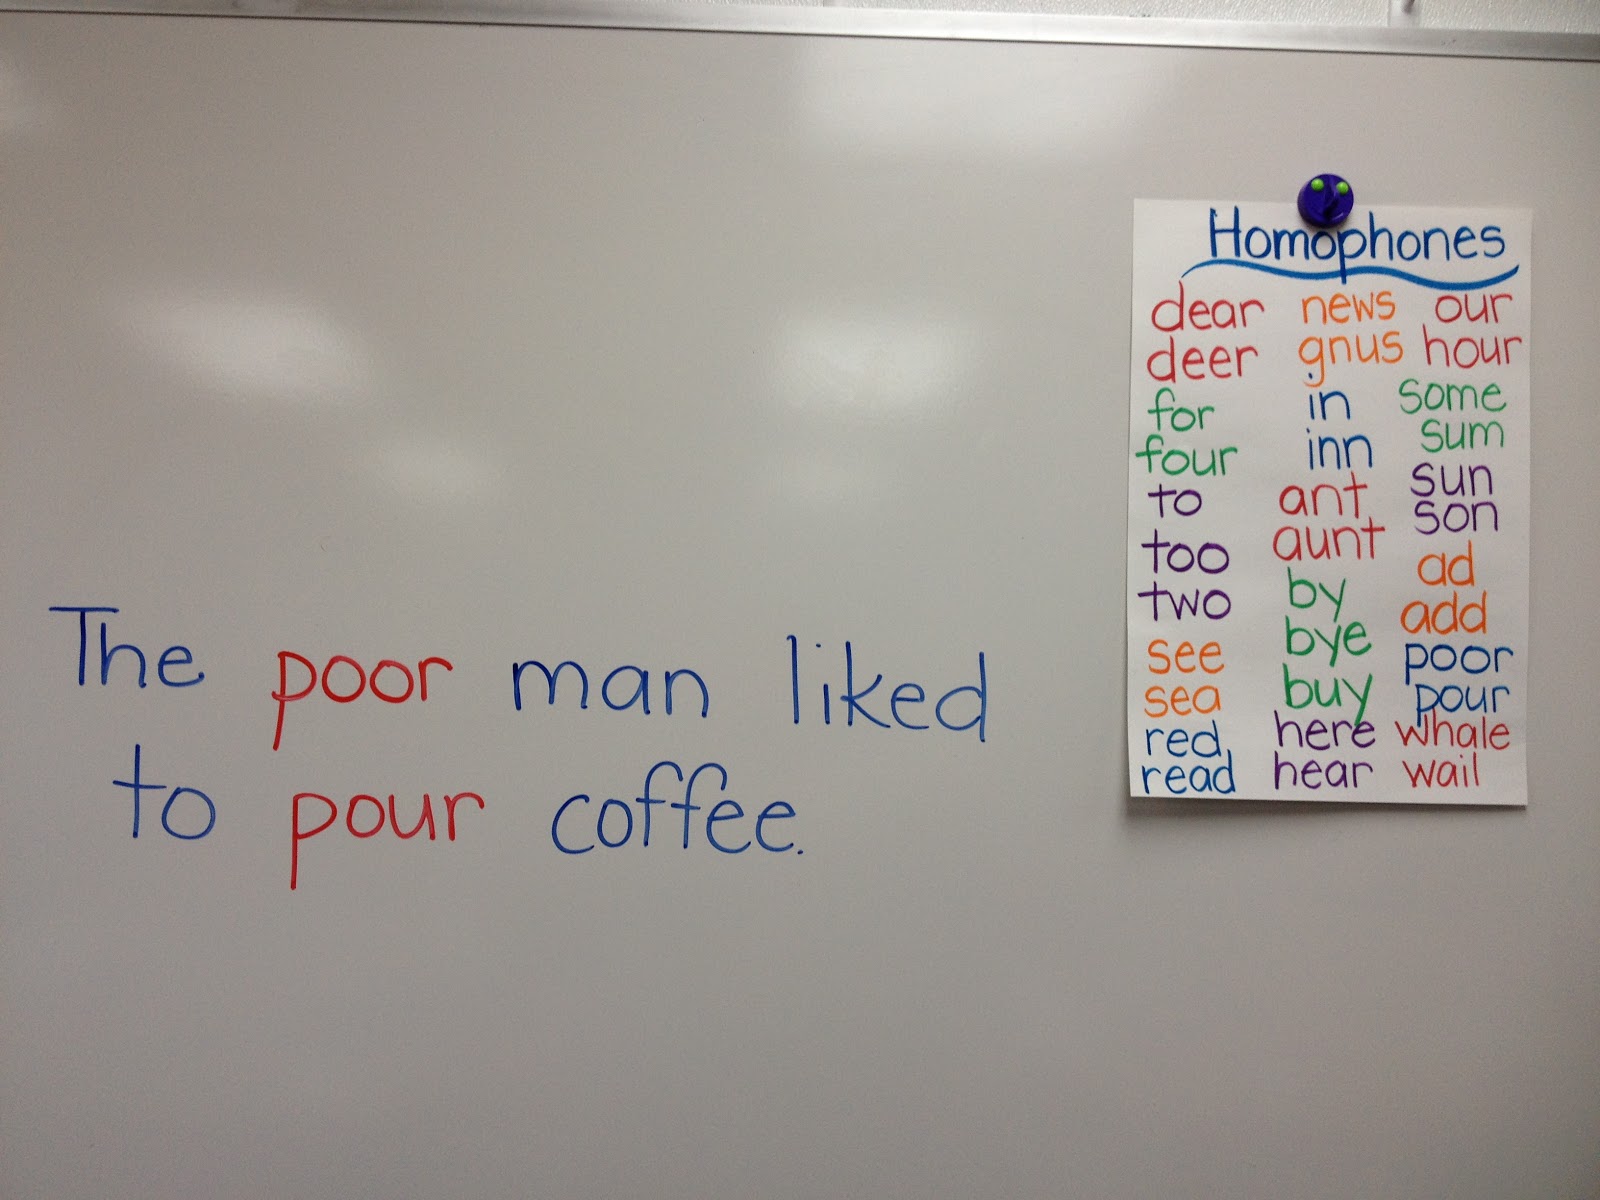 The poor man liked
to pour coffee.
Homophones
dear
deer
for
four
to
too
two
see
sea
red
read
news
gnus
in
inn
ant
aunt
by
bye
buy
here
hear
our
hour
some
sum
sun
son
ad
add
poor
pour
whale
wail